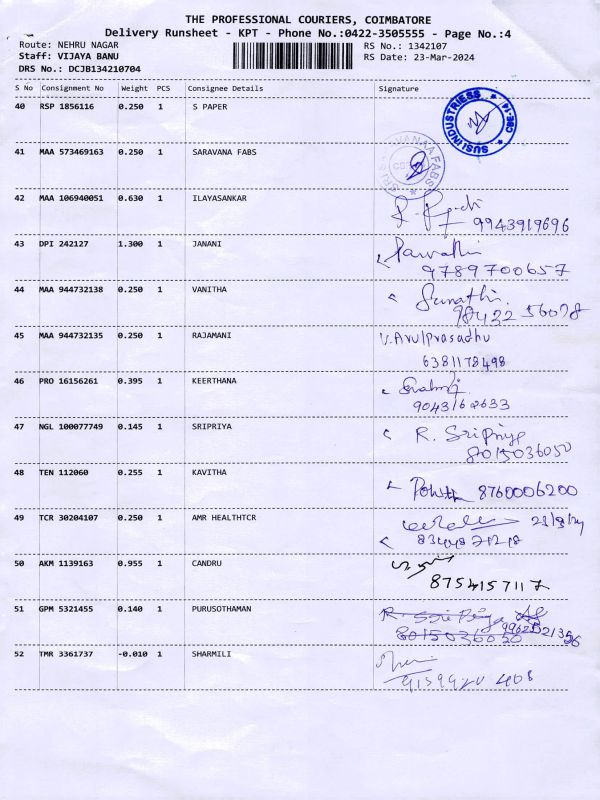 THE PROFESSIONAL COURIERS, COIMBATORE
Delivery Runsheet - KPT - Phone No.:0422-3505555 - Page No.:4
Route: NEHRU NAGAR
RS No.: 1342107
Staff: VIJAYA BANU
RS Date: 23-Mar-2024
DRS No.: DCJB134210704
S No Consignment No Weight PCS Consignee Details Signature
40 RSP 1856116 0.250 1 S PAPER
SUSI INDUSTRIESS
41 MAA 573469163 0.250 1 SARAVANA FABS
42 MAA 106940051 0.630 1 ILAYASANKAR
9943919696
43 DPI 242127 1.300 1 JANANI
9789700657
44 MAA 944732138 0.250 1 VANITHA
98432 56078
45 MAA 944732135 0.250 1 RAJAMANI V.Arulprasadhu
6381178498
46 PRO 16156261 0.395 1 KEERTHANA
9043162633
47 NGL 100077749 0.145 1 SRIPRIYA R. Sripriya
8015036050
48 TEN 112060 0.255 1 KAVITHA 8760006200
49 TCR 30204107 0.250 1 AMR HEALTHTCR
50 AKM 1139163 0.955 1 CANDRU
8754157117
51 GPM 5321455 0.140 1 PURUSOTHAMAN R. Sripriya
8015036050
52 TMR 3361737 -0.010 1 SHARMILI